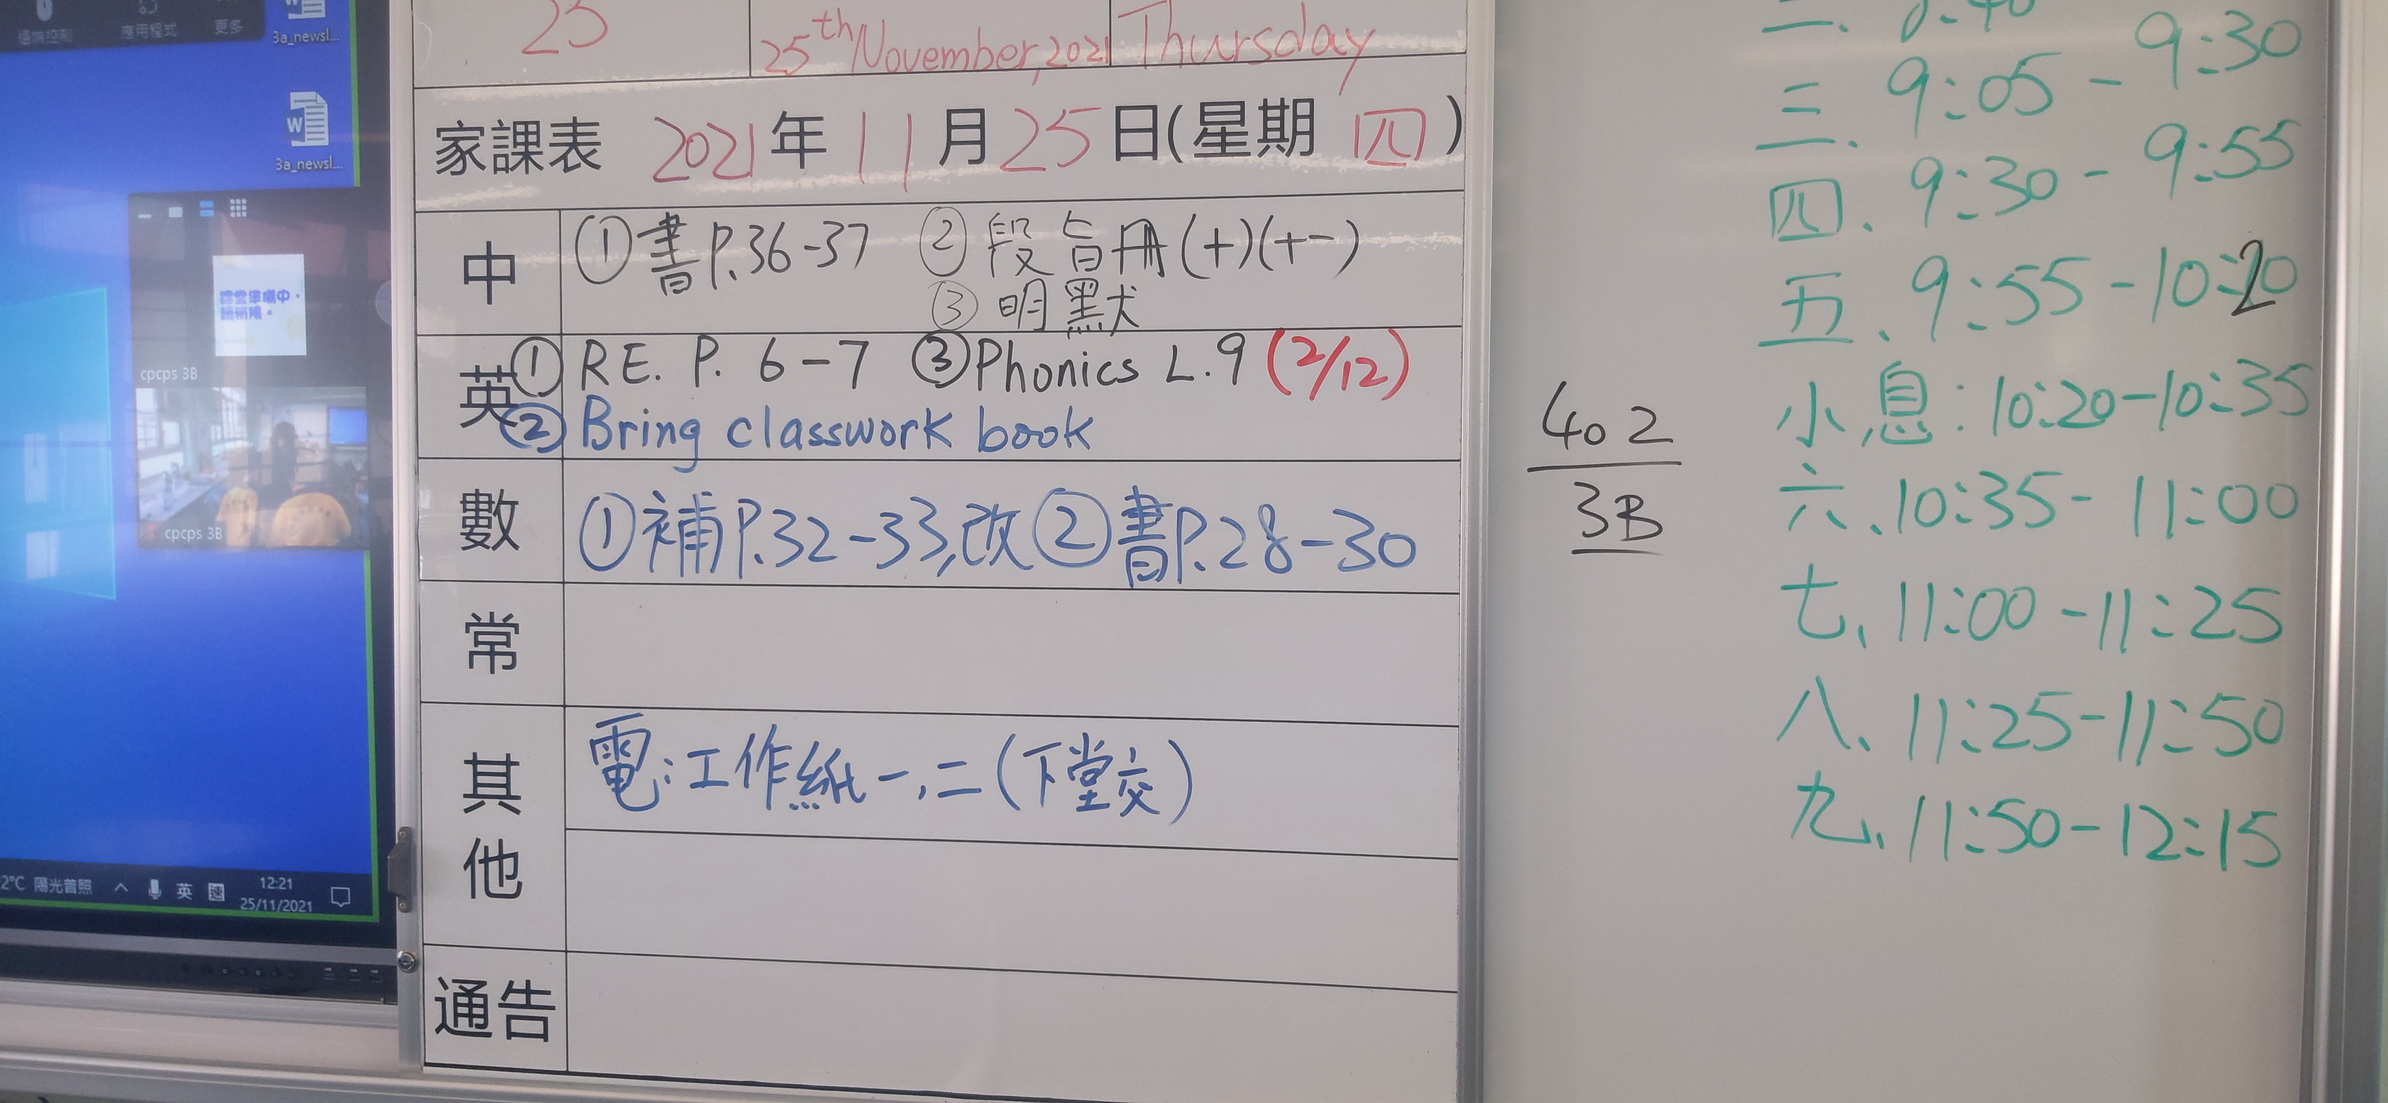 更多
應用程式
3a_newsl...
3a_newsl...
cpcps 3B
cpcps 3B
2°C 陽光普照
英 速
12:21
25/11/2021
25
25th November, 2021
Thursday
家課表 2021年11月25日(星期四)
中
①書P.36-37 ②段旨冊(十)(十一)
③明默
英
①RE. P. 6-7 ③Phonics L.9 (2/12)
②Bring classwork book
數
①補P.32-33,改②書P.28-30
常
其他
電:工作紙一,二(下堂交)
通告
402
3B
二、8:40
三、9:05-9:30
四、9:30-9:55
五、9:55-10:20
小息:10:20-10:35
六、10:35-11:00
七、11:00-11:25
八、11:25-11:50
九、11:50-12:15